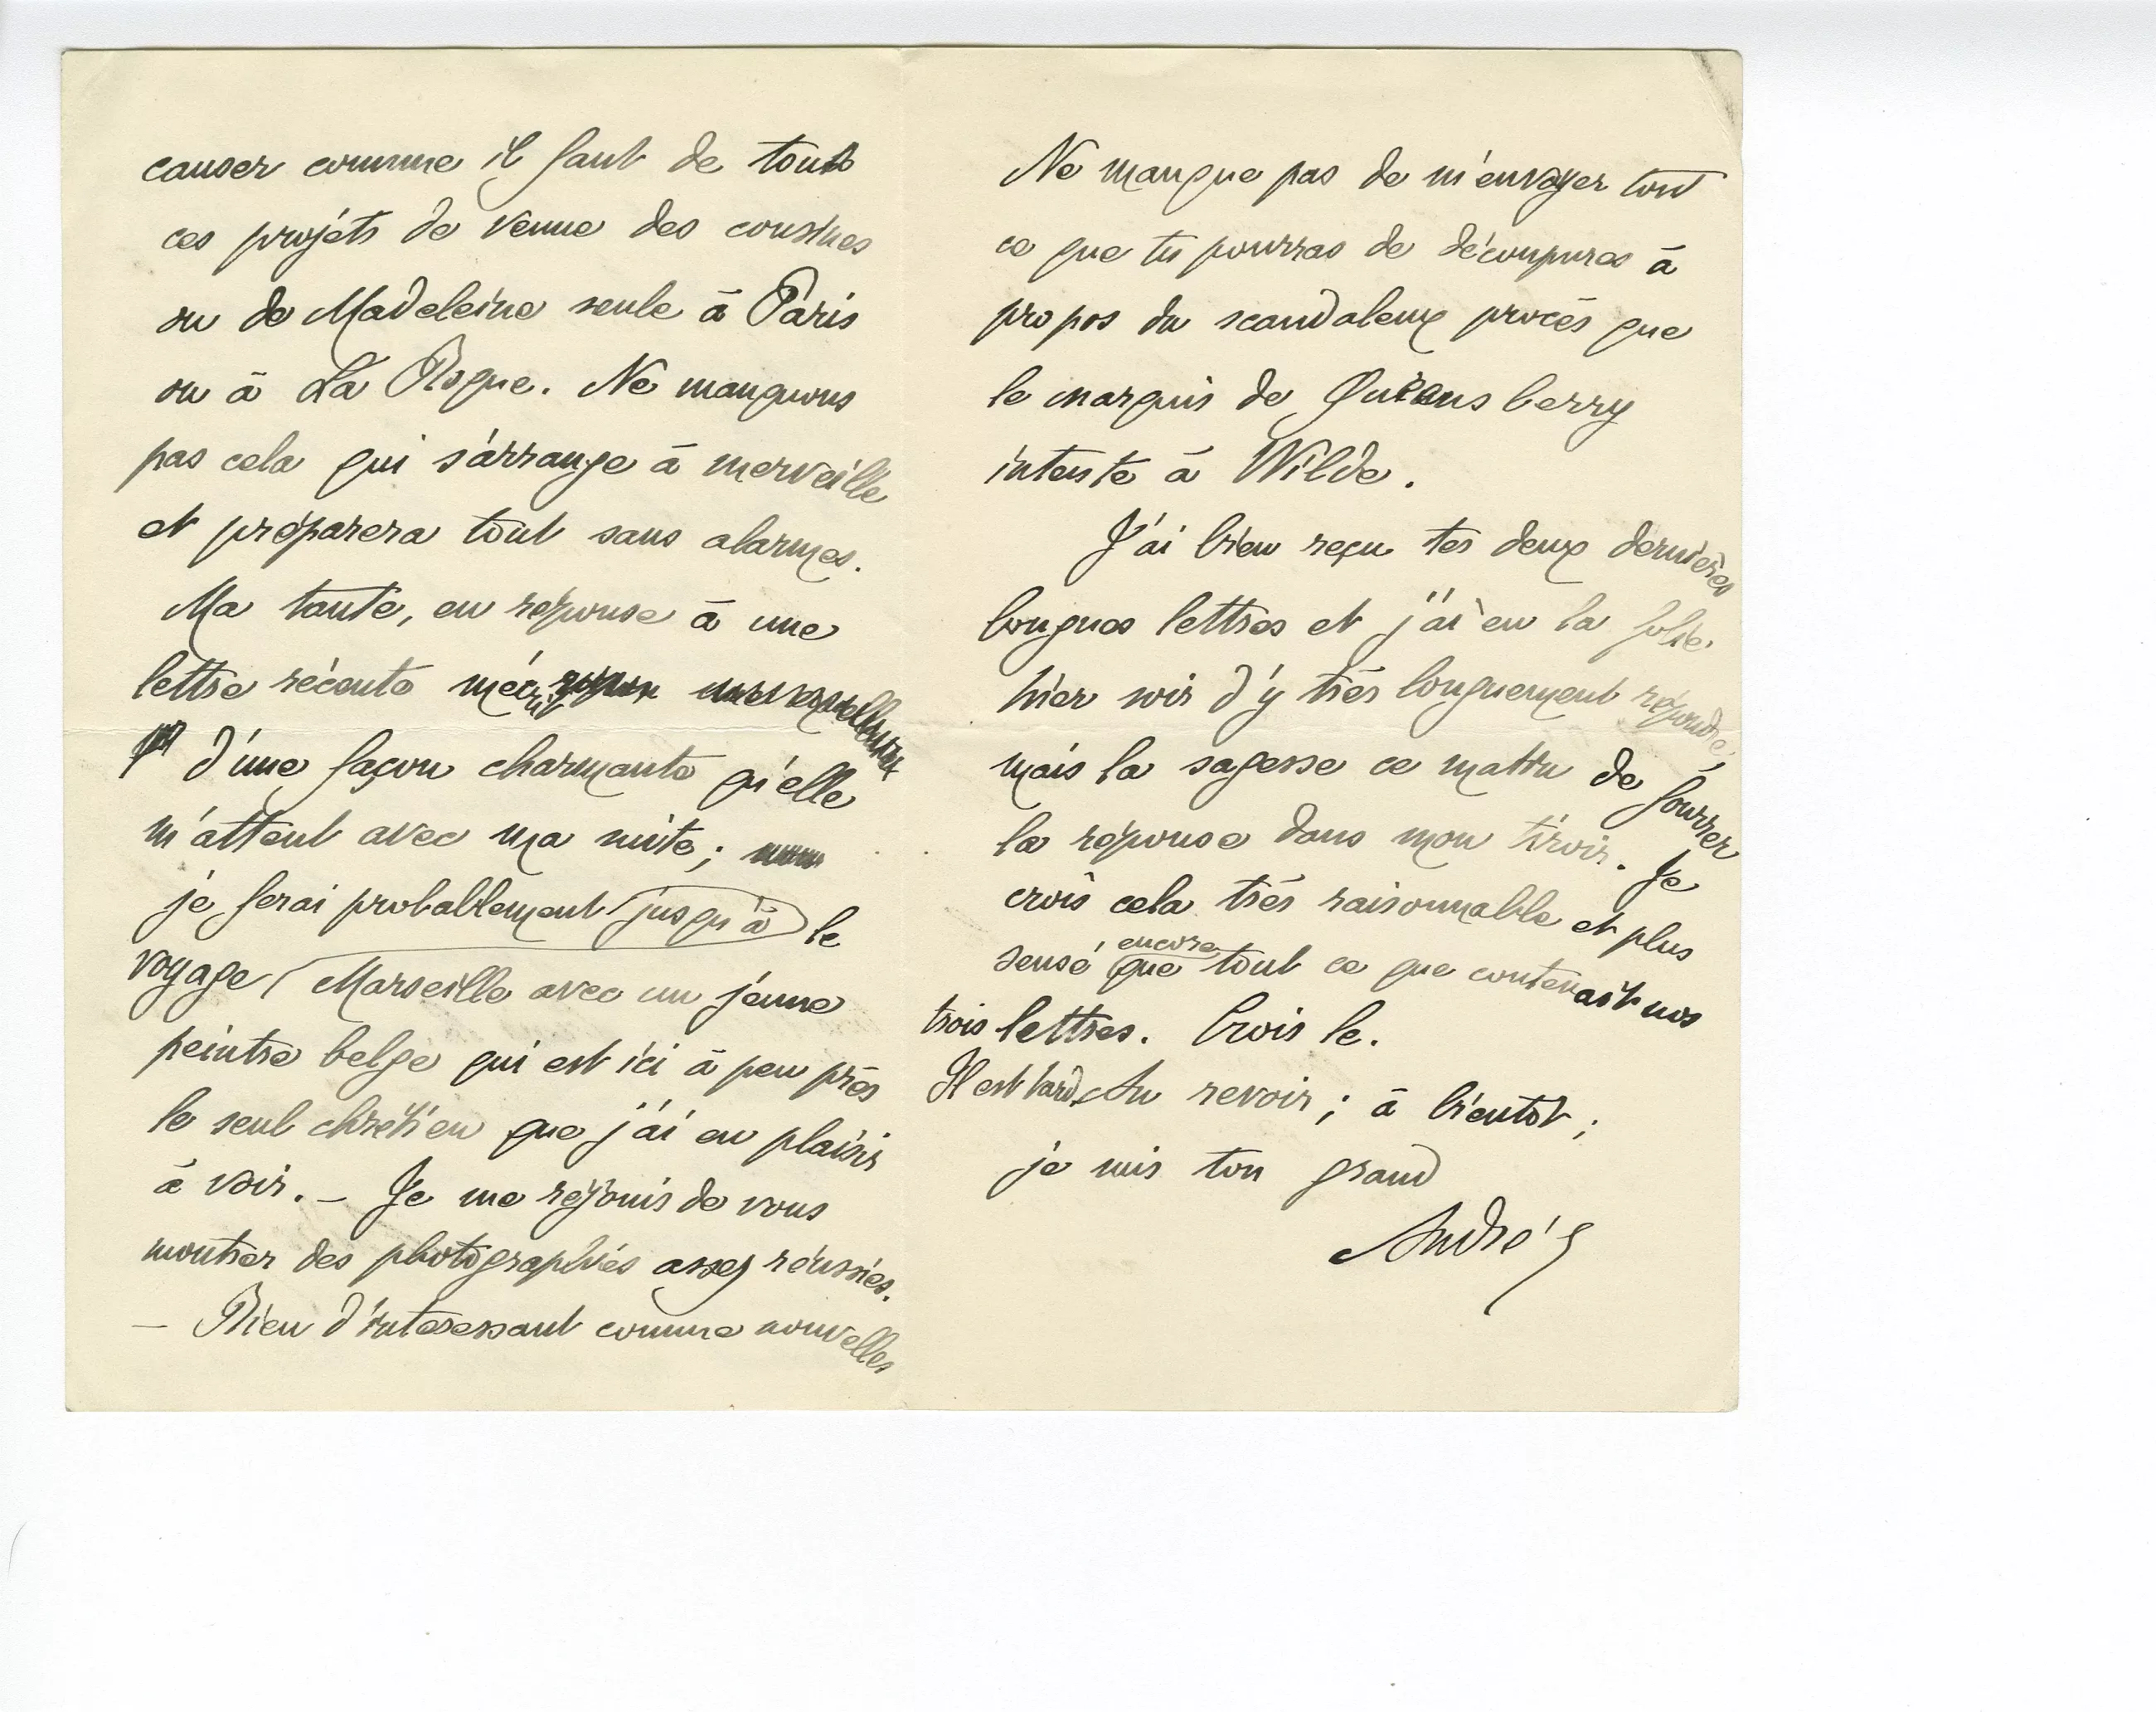 causer comme il faut de tout
ces projets de venue des cousines
ou de Madeleine seule à Paris
ou à La Roque. Ne manquons
pas cela qui s'arrange à merveille
et préparera tout sans alarmes.
Ma tante, en réponse à une
lettre récente m'écrit
d'une façon charmante qu'elle
m'attent avec ma suite;
je ferai probablement jusqu'à le
voyage Marseille avec un jeune
peintre belge qui est ici à peu près
le seul chrétien que j'ai eu plaisir
à voir. – Je me réjouis de vous
montrer des photographies assez réussies.
– Rien d'intéressant comme nouvelles
Ne manque pas de m'envoyer tout
ce que tu pourras de découpures à
propos du scandaleux procès que
le marquis de Queensberry
intente à Wilde.
J'ai bien reçu tes deux dernières
longues lettres et j'ai eu la folie
hier soir d'y très longuement répondre,
mais la sagesse ce matin de fourrer
la réponse dans mon tiroir. Je
crois cela très raisonnable et plus
sensé encore que tout ce que contenait nos
trois lettres. Crois le.
Il est tard. Au revoir; à bientôt;
je suis ton grand
André G